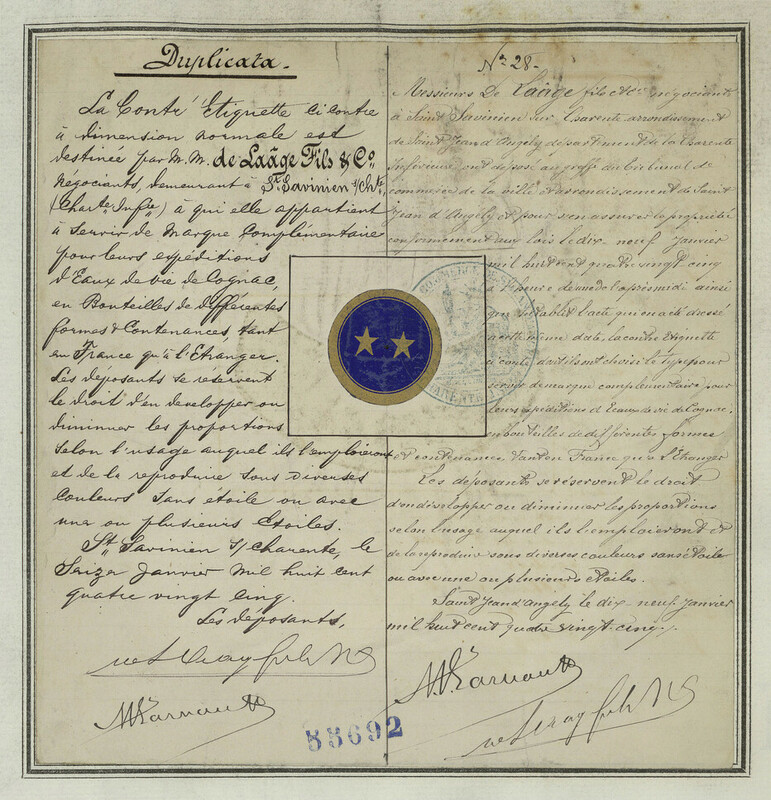 Duplicata.
La Contré Etiquette ci contre
à dimension normale est
destinée par M.M. de Laâge Fils & Co,
Négociants, demeurant à St Savinien s/Chte,
(Charte Infre) à qui elle appartient
à servir de Marque Complémentaire
pour leurs expéditions
d'Eaux de vie de Cognac,
en Bouteilles de différentes
formes & Contenances, tant
en France qu'à l'Etranger.
Les déposants se reservent
le droit d'en developper ou
diminuer les proportions
selon l'usage auquel ils l'emploieront
et de la reproduire sous diverses
Couleurs sans etoile ou avec
une ou plusieurs Etoiles.
St Savinien s/Charente, le
Seize Janvier Mil huit cent
quatre vingt cinq.
Les déposants,
No 28.-
Messieurs De Laâge fils et Cie négociants
à Saint Savinien sur Charente arrondissement
de Saint Jean d'Angely département de la Charente
Inférieure ont déposé au greffe du tribunal de
commerce de la ville et arrondissement de Saint
Jean d'Angely et pour s'en assurer la propriété
conformément aux lois le dix-neuf Janvier
mil huit cent quatre vingt cinq
heure de l'après midi ainsi
que l'acte qui en a été dressé
à cette même date, la contre Etiquette
ci contre dont ils ont choisi le type pour
servir de marque complémentaire pour
leurs expéditions d'Eaux de vie de Cognac,
en bouteilles de différentes formes
et contenances, tant en France qu'à l'Etranger
Les déposants se réservent le droit
d'en développer ou diminuer les proportions
selon l'usage auquel ils l'emploieront et
de la reproduire sous diverses couleurs sans étoiles
ou avec une ou plusieurs étoiles.
Saint Jean d'Angely le dix-neuf Janvier
mil huit cent quatre vingt-cinq.
55692